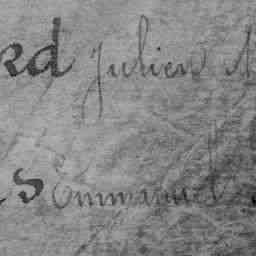 kd Julien
s Emmanuel